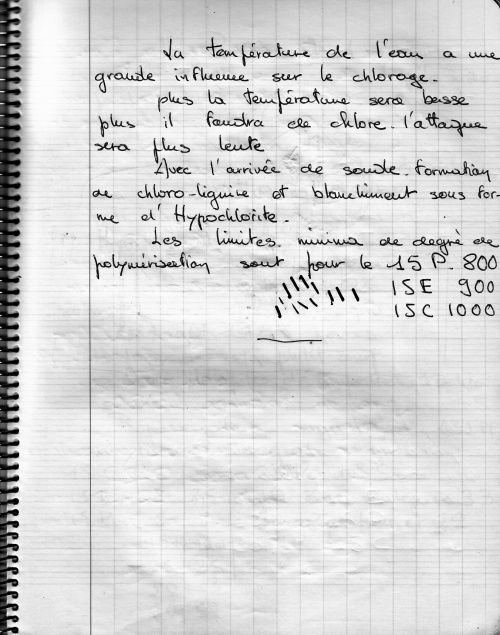 La température de l'eau a une
grande influence sur le chlorage.
plus la température sera basse
plus il faudra de chlore. l'attaque
sera plus lente
Avec l'arrivée de soude. Formation
de chloro-lignine et blanchiment sous for-
me d'Hypochlorite.
Les limites minima de degré de
polymérisation sont pour le 15 P. 800
15 E 900
15 C 1000